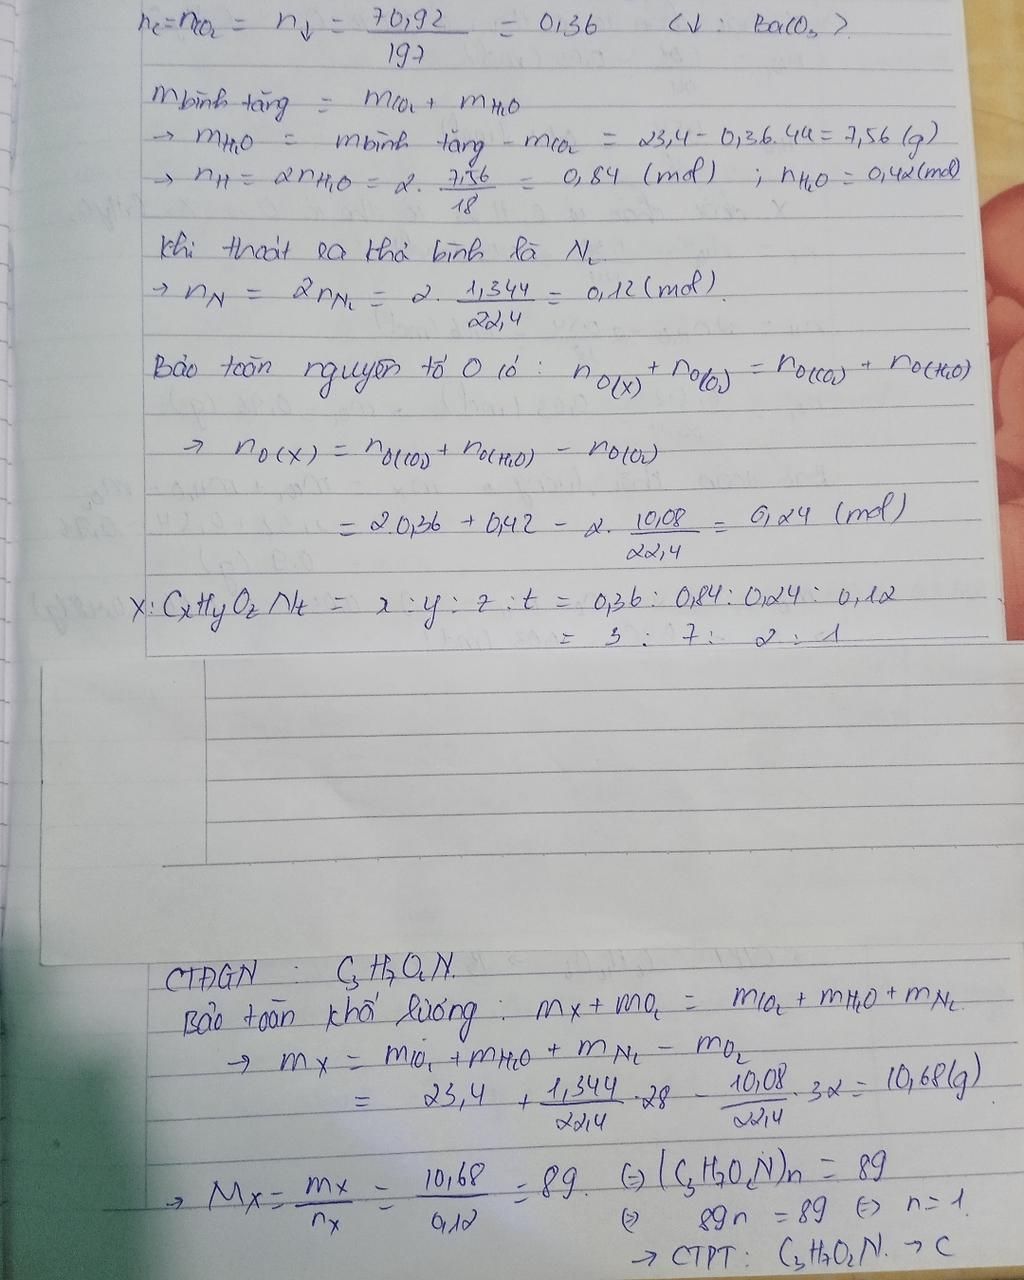 nc = nCO2 = n↓ = 70,92/197 = 0,36 (↓: BaCO3)
m bình tăng = mCO2 + mH2O
→ mH2O = m bình tăng - mCO2 = 23,4 - 0,36.44 = 7,56 (g)
→ nH = 2nH2O = 2. 7,56/18 = 0,84 (mol) ; nH2O = 0,42 (mol)
Khí thoát ra khỏi bình là N2
→ nN = 2nN2 = 2. 1,344/22,4 = 0,12 (mol)
Bảo toàn nguyên tố O có : nO(X) + nO(O2) = nO(CO2) + nO(H2O)
→ nO(X) = nO(CO2) + nO(H2O) - nO(O2)
= 2.0,36 + 0,42 - 2. 10,08/22,4 = 0,24 (mol)
X: CxHyOzNt = x : y : z : t = 0,36 : 0,84 : 0,24 : 0,12
= 3 : 7 : 2 : 1
CTĐGN : C3H7O2N.
Bảo toàn khối lượng : mX + mO2 = mCO2 + mH2O + mN2
→ mX = mCO2 + mH2O + mN2 - mO2
= 23,4 + 1,344/22,4 .28 - 10,08/22,4 . 32 = 10,68 (g)
→ MX = mX/nX = 10,68/0,12 = 89. (=) (C3H7O2N)n = 89
(=) 89n = 89 (=) n = 1.
→ CTPT: C3H7O2N. → C